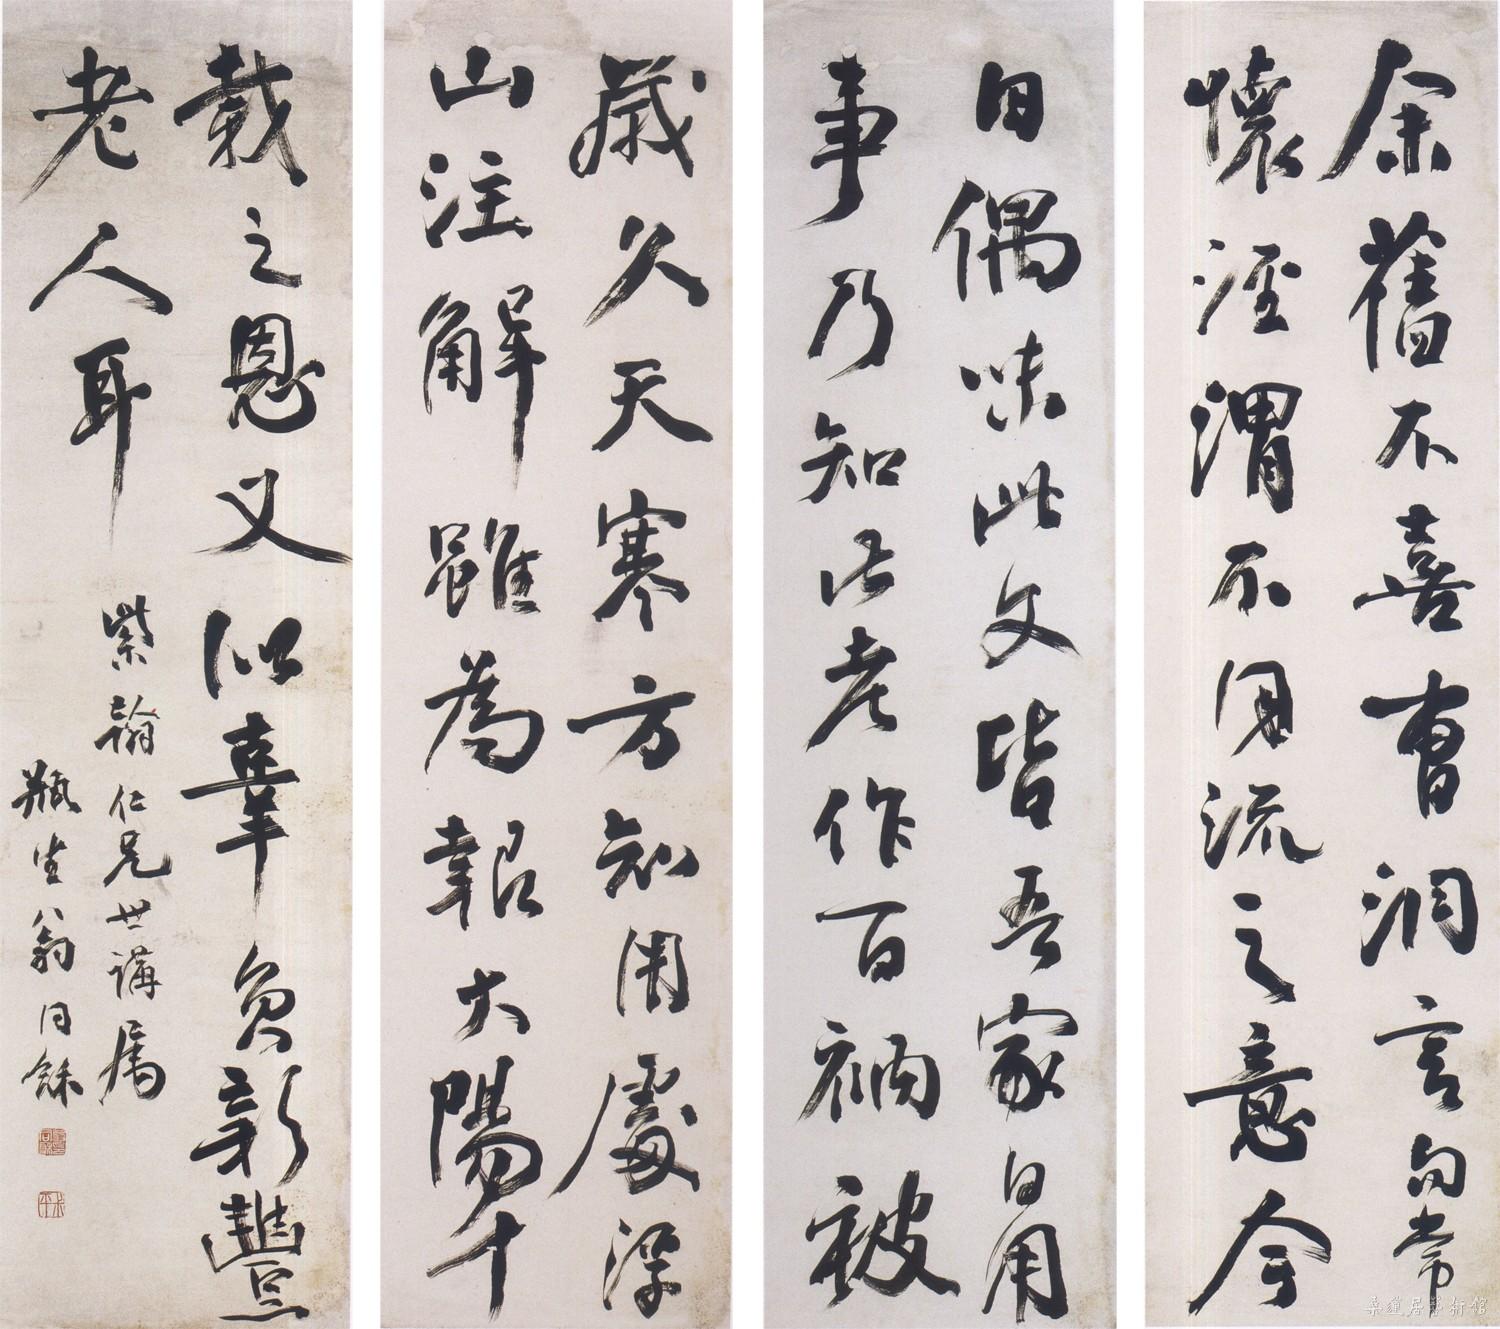 余舊不喜曹洞言句常
懷涇渭不同流之意今
日偶味此文皆吾家日用
事乃知此老作百衲被
歲久天寒方知用處浮
山注解雖為報大陽十
載之恩又似辜負新豐
老人耳
紫翰仁兄世講屬
瓶生翁同龢
桑蓮居藝術館